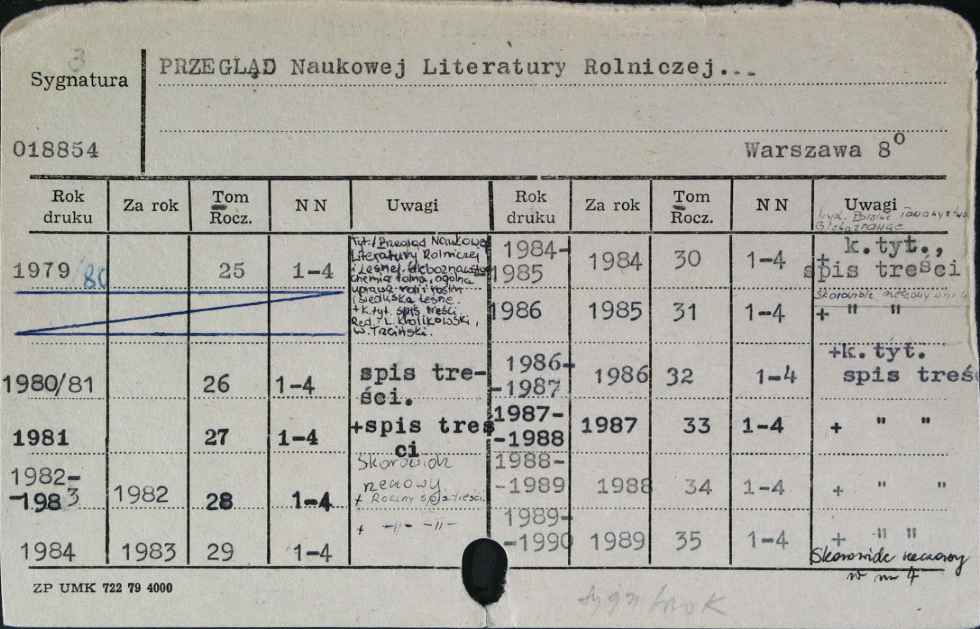 3
PRZEGLĄD Naukowej Literatury Rolniczej...
Sygnatura
018854
Warszawa 8⁰
Rok druku | Za rok | Tom Rocz. | NN | Uwagi | Rok druku | Za rok | Tom Rocz. | NN | Uwagi
1979 80 | 25 | 1-4
Tyt.: Przegląd Naukowej
Literatury Rolniczej
i Leśnej. Gleboznawstwo
chemia rolna, ogólna
uprawa roli i roślin
i siedliska leśne.
+ k.tyt. spis treści
Red.: L. Królikowski,
W. Trzciński.
1980/81 | 26 | 1-4 | spis tre-
ści.
1981 | 27 | 1-4 | +spis treś
ci
1982-
-1983 | 1982 | 28 | 1-4 | Skorowidz
rzeczowy
+ Roczny spis treści
1984 | 1983 | 29 | 1-4 | + -"- -"-
1984-
1985 | 1984 | 30 | 1-4 | + k.tyt.,
spis treści
1986 | 1985 | 31 | 1-4 | + " "
1986-
-1987 | 1986 | 32 | 1-4 | +k.tyt.
spis treś
1987-
-1988 | 1987 | 33 | 1-4 | + " "
1988-
-1989 | 1988 | 34 | 1-4 | + " "
1989-
-1990 | 1989 | 35 | 1-4 | + " "
Skorowidz rzeczowy
w nr 4
ZP UMK 722 79 4000